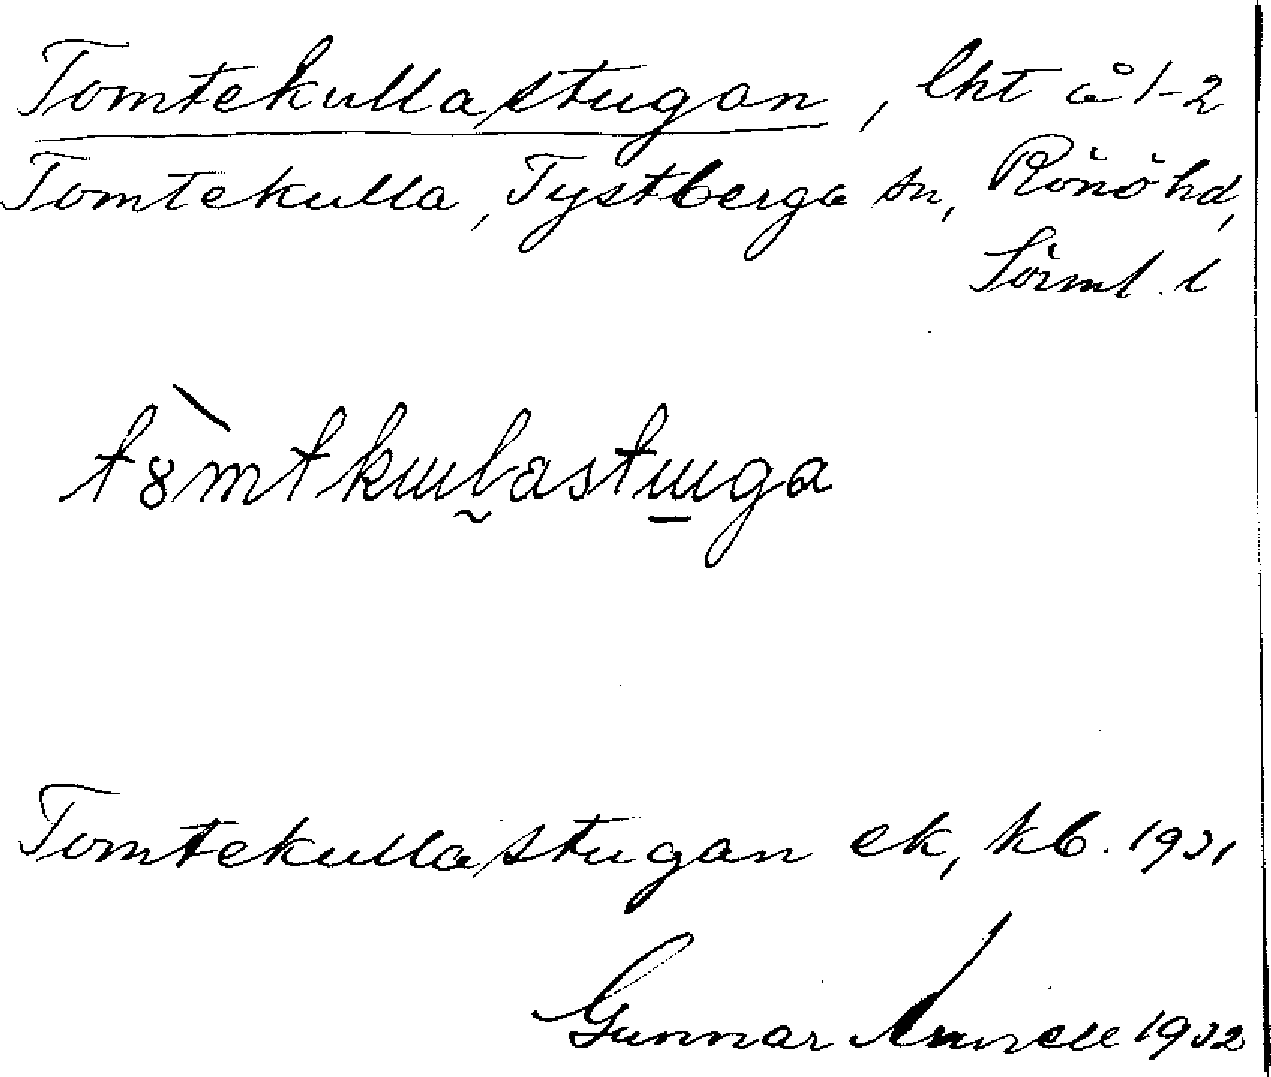 Tomtekullastugan, lht å 1-2
Tomtekulla, Tystberga sn, Rönö hd,
Sörml. l
t8̀mtkɯl̰astɯ̱ga
Tomtekullastugan ek, kb. 1931
Gunnar 1932